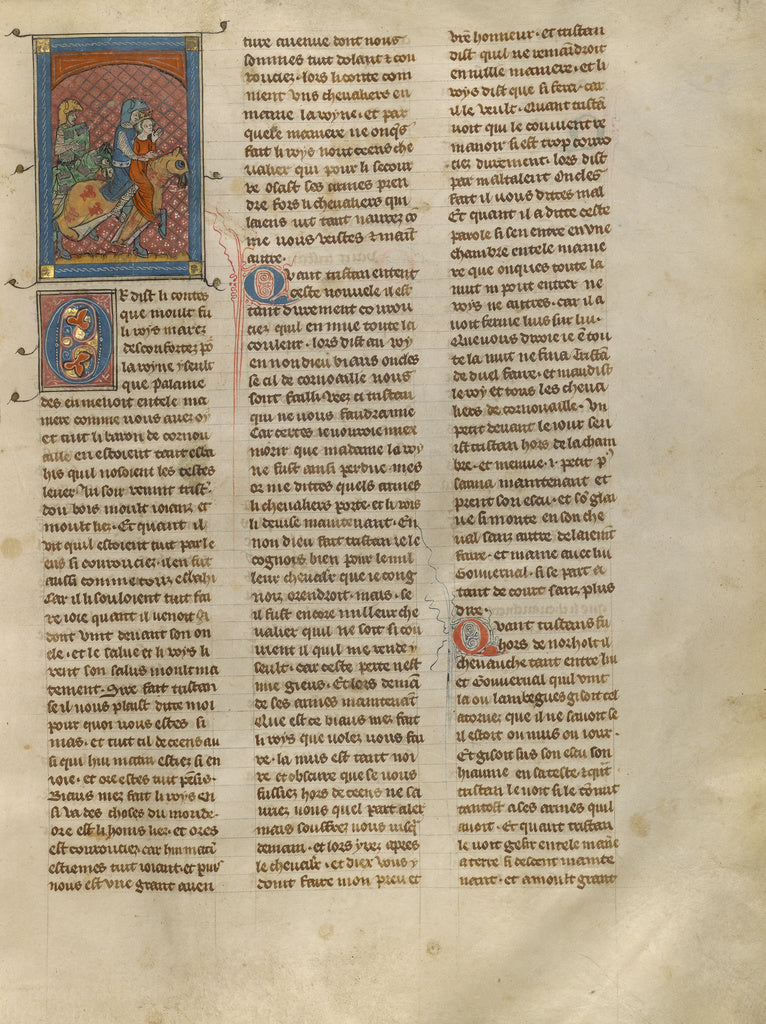 R dist li contes
que moult fu
li roys marcz
desconfortez po
la royne yseult
que palame
des en menoit en tele ma
niere comme vous avez oy
et tuit li baron de cornou
aille en estoient tuit esba
his quil nosoient les testes
lever
dou bois moult ioianz et
moult liez. Et quant il
vit quil estoient tuit par le
ens si courouciez. il en fut
aussi comme touz esbahi
Car il li souloient tuit fai
re ioie quant il venoit
dont vint devant son on
cle. et le salue et li roys li
rent son salus moult ma
tement. Sire fait tristan
se il vous plaist dite moi
pour quoi vous estes si
mas. et tuit cil de ceens au
si qui hui matin estiez si en
voie. et ore estes tuit
Biaus niez fait li roys en
si va des choses du monde.
ore est li homs liez. et ores
est courouciez. car hui mati
estiemes tuit ioiant. et puis
nous est une grant aven
ture avenue dont nous
sommes tuit dolant et cou
rouciez. lors li conte com
ment uns chevaliers en
maine la royne. et par
quele maniere ne onques
fait li roys not ceens che
valier qui pour li secour
re osast ses armes pren
dre fors li chevaliers qui
laiens vit tant navrez co
me vous veistes
autre.
Quant tristan entent
ceste nouvele il est
tant durement courou
ciez quil en mue toute la
couleur. lors dist au roy
en non dieu biaus oncles
se cil de cornoaille vous
sont failli veez ci tristan
qui ne vous faudra mie
Car certes ie voudroie miex
morir que madame la roy
ne fust ainsi perdue. mes
or me dittes quels armes
li chevaliers porte. et li rois
li devise maintenant. En
non dieu fait tristan ie le
cognois bien pour le mil
leur chevalier que ie cong
nois orendroit. mais. se
il fust encore milleur che
valier quil ne soit si cou
vient il quil me rende y
seult. car ceste perte nest
mie gieus. Et lors
de ses armes maintenant
Que est ce biaus niez fait
li roys que volez vous fai
re. la nuis est tant noi
re et obscure que se vous
fussiez hors de ceens ne sa
uriez vous quel part aler
mais souffrez vous iusques
demain. et lors yrez apres
le chevalier. et diex vous y
doint faire mon preu et
vostre honneur. et tristan
dist quil ne remaindroit
en nulle maniere. et li
roys dist que si fera. car
il le veult. Quant tristan
voit qui le couvient re
manoir si est trop corou
ciez durement. lors dist
par maltalent Oncles
fait il vous dittes mal
Et quant il a ditte ceste
parole si sen entre en une
chambre en tele manie
re que onques toute la
nuit ni pout entrer ne
roys ne autres. car il a
voit ferme luis sur lui.
Que vous diroie ie
te la nuit ne fina tristan
de duel faire. et maudist
le roy et tous les cheva
liers de cornouaille. Un
petit devant le iour sen
ist tristan hors de la cham
bre. et
sarma maintenant et
prent son escu. et son glai
ve si monte en son che
val sanz autre delaiement
faire. et maine avec lui
Gouvernal. si se part a
tant de court sanz plus
dire.
Quant tristans fu
hors de norholt il
chevauche tant entre lui
et Gouvernal quil vint
la ou lambegues gisoit tel
atornez que il ne savoit se
il estoit ou nuis ou iour.
Et gisoit sus son escu son
hiaume en sa teste.
tristan le voit si le connut
tantost a ses armes quil
avoit. Et quant tristan
le voit gesir en tele maniere
a terre si descent mainte
nant. et a moult grant